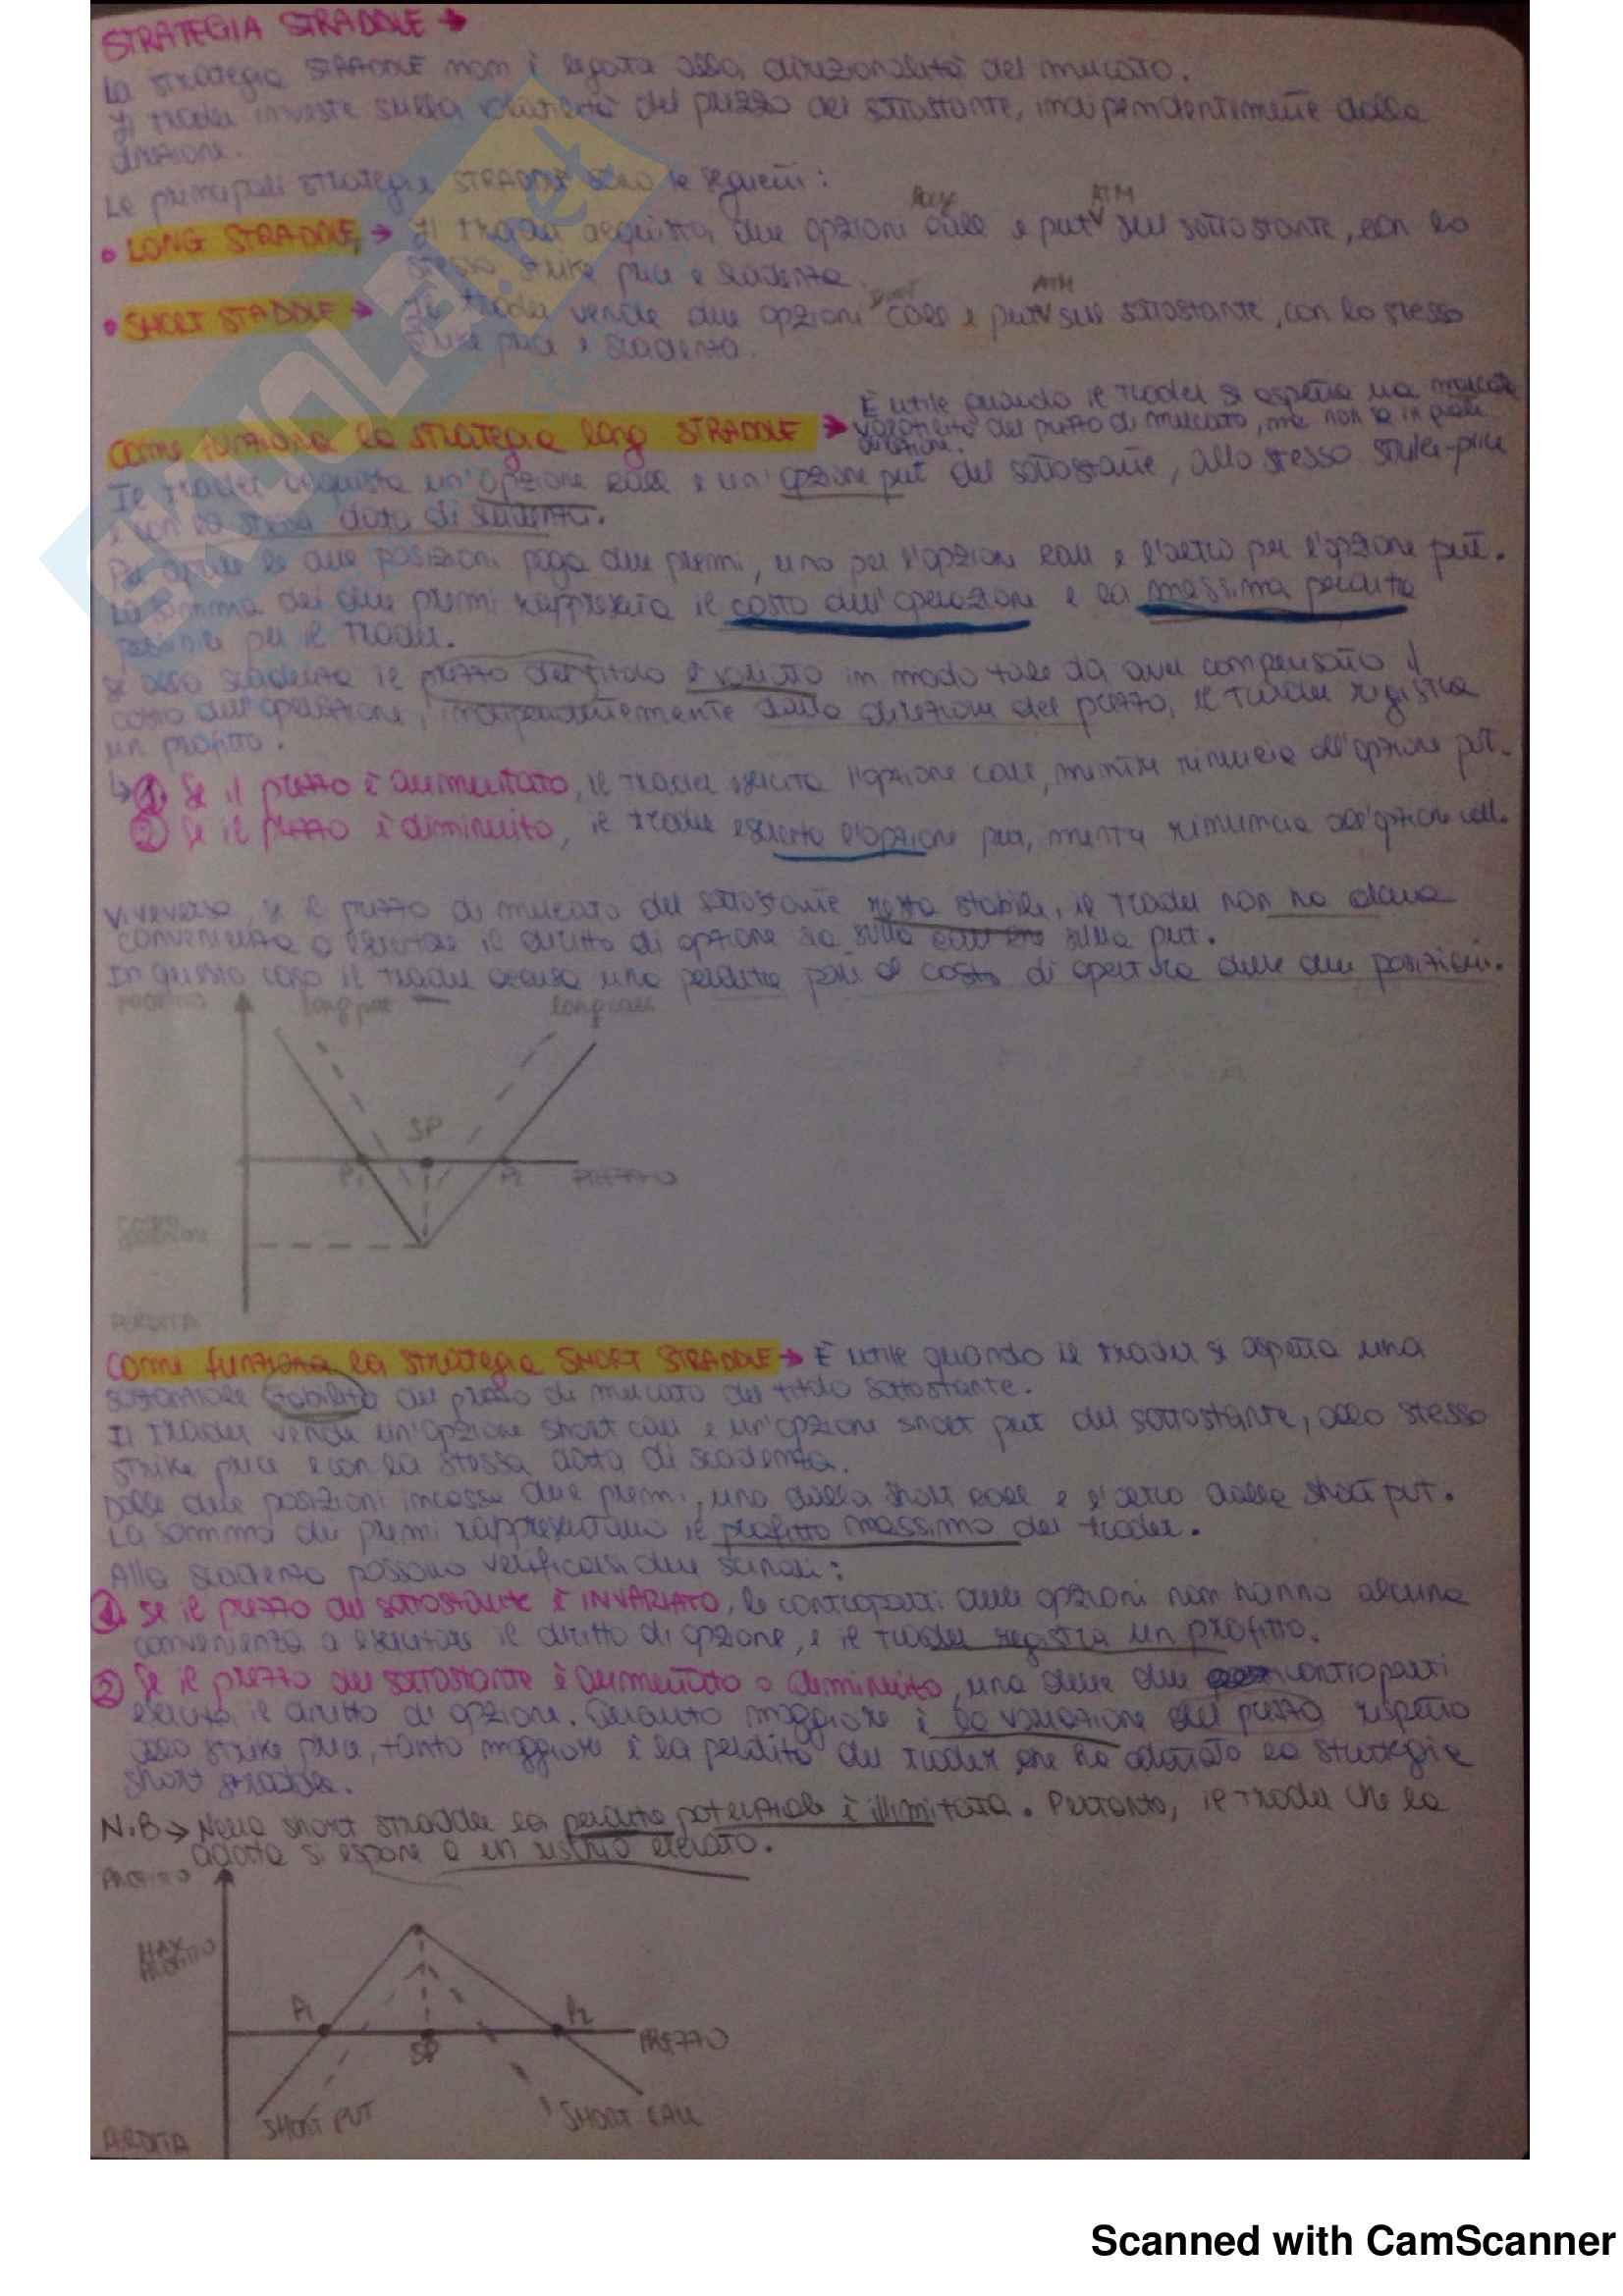 STRATEGIA STRADDLE →
La strategia STRADDLE non è legata alla direzionalità del mercato.
Il trader investe sulla volatilità del prezzo del sottostante, indipendentemente dalla
direzione.
Le principali strategie STRADDLE sono le seguenti:
ATM
• LONG STRADDLE → Il trader acquista due opzioni call e put sul sottostante, con lo
stesso strike price e scadenza.
ATM
• SHORT STADDLE → Il trader vende due opzioni call e put sul sottostante, con lo stesso
strike price e scadenza.
È utile quando il trader si aspetta una marcata
Come funziona la strategia long STRADDLE → volatilità del prezzo di mercato, ma non sa in quale
direzione.
Il trader acquista un'opzione call e un'opzione put del sottostante, allo stesso strike-price
e con la stessa data di scadenza.
Per aprire le due posizioni paga due premi, uno per l'opzione call e l'altro per l'opzione put.
La somma dei due premi rappresenta il costo dell'operazione e la massima perdita
possibile per il trader.
Se alla scadenza il prezzo del titolo è variato in modo tale da aver compensato il
costo dell'operazione, indipendentemente dalla direzione del prezzo, il trader registra
un profitto.
↳ 1 Se il prezzo è aumentato, il trader esercita l'opzione call, mentre rinuncia all'opzione put.
2 Se il prezzo è diminuito, il trader esercita l'opzione put, mentre rinuncia all'opzione call.
Viceversa, se il prezzo di mercato del sottostante resta stabile, il trader non ha alcuna
convenienza a esercitare il diritto di opzione sia sulla call che sulla put.
In questo caso il trader accusa una perdita pari al costo di apertura delle due posizioni.
PROFITTO long put long call
SP
P1 P2 PREZZO
PERDITA
Come funziona la strategia SHORT STRADDLE → È utile quando il trader si aspetta una
sostanziale stabilità del prezzo di mercato del titolo sottostante.
Il trader vende un'opzione short call e un'opzione short put del sottostante, allo stesso
strike price e con la stessa data di scadenza.
Dalle due posizioni incassa due premi, uno dalla short call e l'altro dalla short put.
La somma dei premi rappresentano il profitto massimo del trader.
Alla scadenza possono verificarsi due scenari:
1 Se il prezzo del sottostante è INVARIATO, le controparti delle opzioni non hanno alcuna
convenienza a esercitare il diritto di opzione, e il trader registra un profitto.
2 Se il prezzo del sottostante è aumentato o diminuito, una delle due controparti
esercita il diritto di opzione. Quanto maggiore è la variazione del prezzo rispetto
allo strike price, tanto maggiore è la perdita del trader che ha adottato la strategia
short straddle.
N.B → Nella short straddle la perdita potenziale è illimitata. Pertanto, il trader che la
adotta si espone a un rischio elevato.
PROFITTO
MAX
PROFITTO
P1 P2
SP PREZZO
SHORT PUT SHORT CALL
PERDITA
Scanned with CamScanner